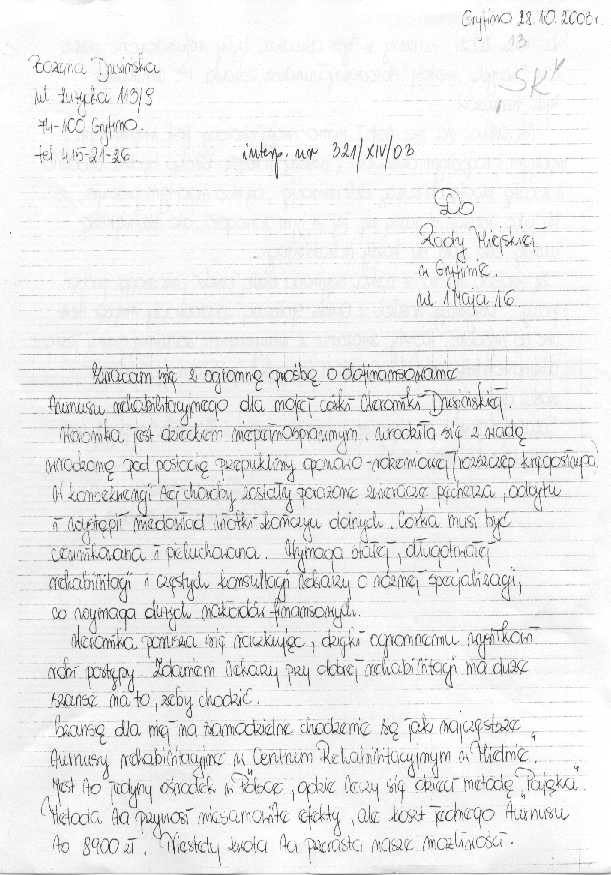 Gryfino 28.10.2003r.
13
SK
Bożena Dusińska
ul. Łużycka 113/9
74-100 Gryfino.
tel 415-21-26
interp. nr 321/XIV/03
Do
Rady Miejskiej
w Gryfinie.
ul. 1 Maja 16.
Zwracam się z ogromną prośbą o dofinansowanie
turnusu rehabilitacyjnego dla mojej córki Weroniki Dusińskiej.
Weronika jest dzieckiem niepełnosprawnym. urodziła się z wadą
wrodzoną pod postacią przepukliny oponowo-rdzeniowej (rozszczep kręgosłupa)
W konsekwencji tej choroby zostały porażone zwieracze pęcherza, odbytu
i wystąpił niedowład wiotki kończyn dolnych. Córka musi być
cewnikowana i pieluchowana. Wymaga stałej, długotrwałej
rehabilitacji i częstych konsultacji lekarzy o różnej specjalizacji,
co wymaga dużych nakładów finansowych.
Weronika porusza się raczkując, dzięki ogromnemu wysiłkowi
robi postępy. Zdaniem lekarzy przy dobrej rehabilitacji ma duże
szanse na to, żeby chodzić.
Szansę dla niej na samodzielne chodzenie są jak najczęstsze
turnusy rehabilitacyjne w Centrum Rehabilitacyjnym w Mielnie.
Jest to jedyny ośrodek w Polsce, gdzie leczy się dzieci metodą "Pająka".
Metoda ta przynosi niesamowite efekty, ale koszt jednego turnusu
to 8900 zł. Niestety kwota ta przerasta nasze możliwości.